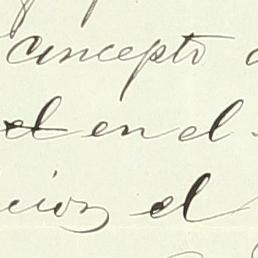 concepto
en el
cion el